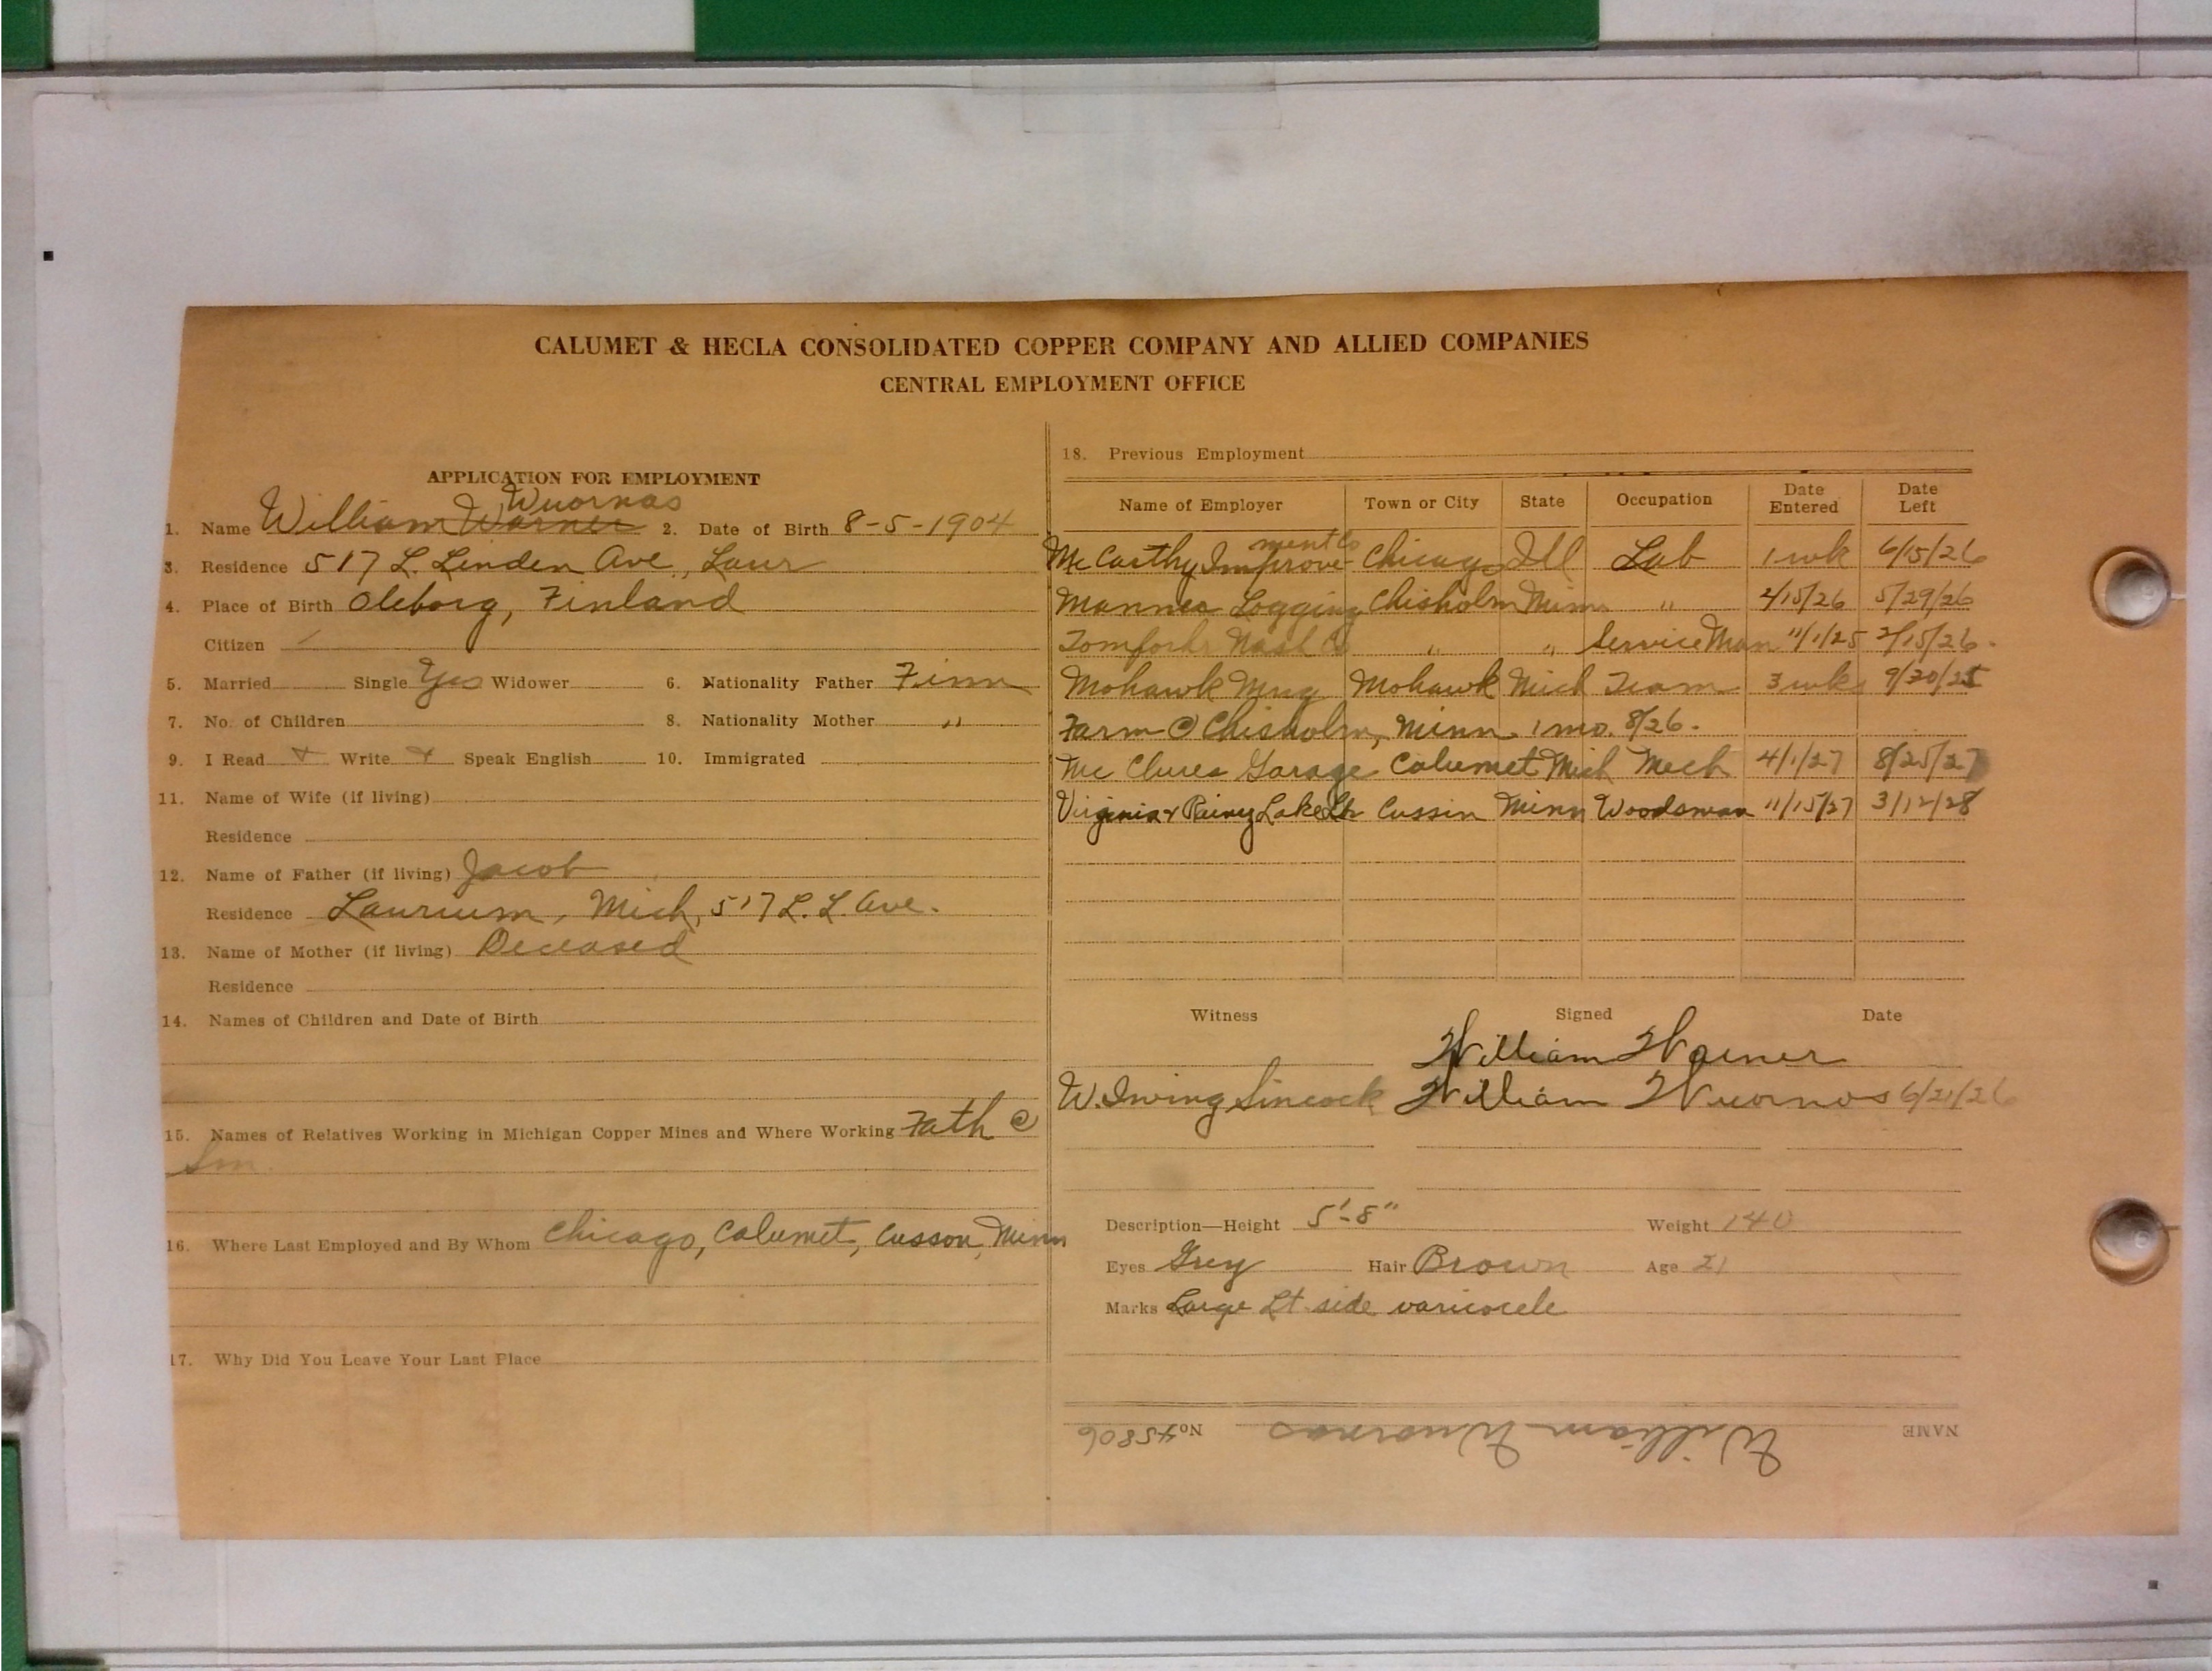 CALUMET & HECLA CONSOLIDATED COPPER COMPANY AND ALLIED COMPANIES
CENTRAL EMPLOYMENT OFFICE
APPLICATION FOR EMPLOYMENT
Wuornas
1. Name William Warner 2. Date of Birth 8-5-1904
3. Residence 517 L. Linden Ave., Laur
4. Place of Birth Oleborg, Finland
Citizen
5. Married Single Yes Widower 6. Nationality Father Finn
7. No. of Children 8. Nationality Mother "
9. I Read Write Speak English 10. Immigrated
11. Name of Wife (if living)
Residence
12. Name of Father (if living) Jacob
Residence Laurium, Mich, 517 L. L. Ave.
13. Name of Mother (if living) Deceased
Residence
14. Names of Children and Date of Birth
15. Names of Relatives Working in Michigan Copper Mines and Where Working Fath @
Sm.
16. Where Last Employed and By Whom Chicago, Calumet, Cusson, Minn
17. Why Did You Leave Your Last Place
18. Previous Employment
Name of Employer Town or City State Occupation Date Entered Date Left
McCarthy Improvement Co Chicago Ill Lab 1 wk 6/15/26
Logging Chisholm Minn " 4/15/26 5/29/26
Nash Co " " Service Man 11/1/25 2/15/26.
Mohawk Mng Mohawk Mich Team 3 wks 9/20/25
Farm @ Chisholm, Minn. 1 mo. 8/26.
Mc Clures Garage Calumet Mich Mech 4/1/27 8/25/27
Virginia & Rainy Lake Cussin Minn Woodsman 11/15/27 3/12/28
Witness Signed Date
William Warner
W. Irving Sincock William Wuornos 6/21/26
Description—Height 5'-8" Weight 140
Eyes Grey Hair Brown Age 21
Marks Large Lt. side varicocele
NAME William Wuornas No. 45806